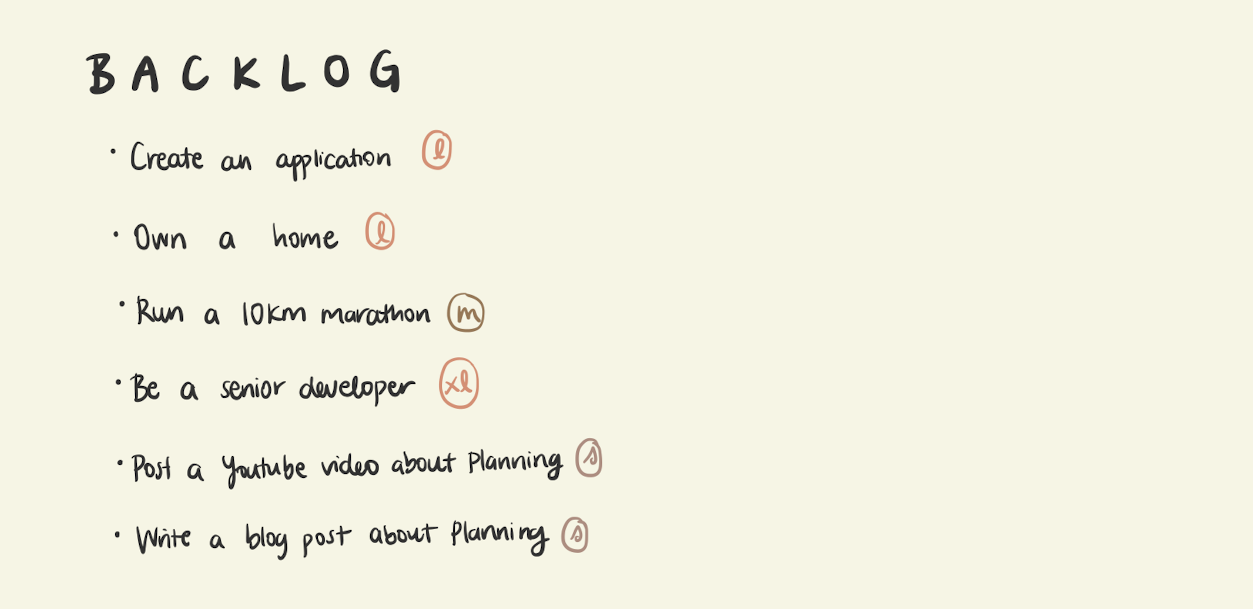 BACKLOG
· Create an application l
· Own a home l
· Run a 10km marathon m
· Be a senior developer xl
· Post a Youtube video about Planning s
· Write a blog post about Planning s